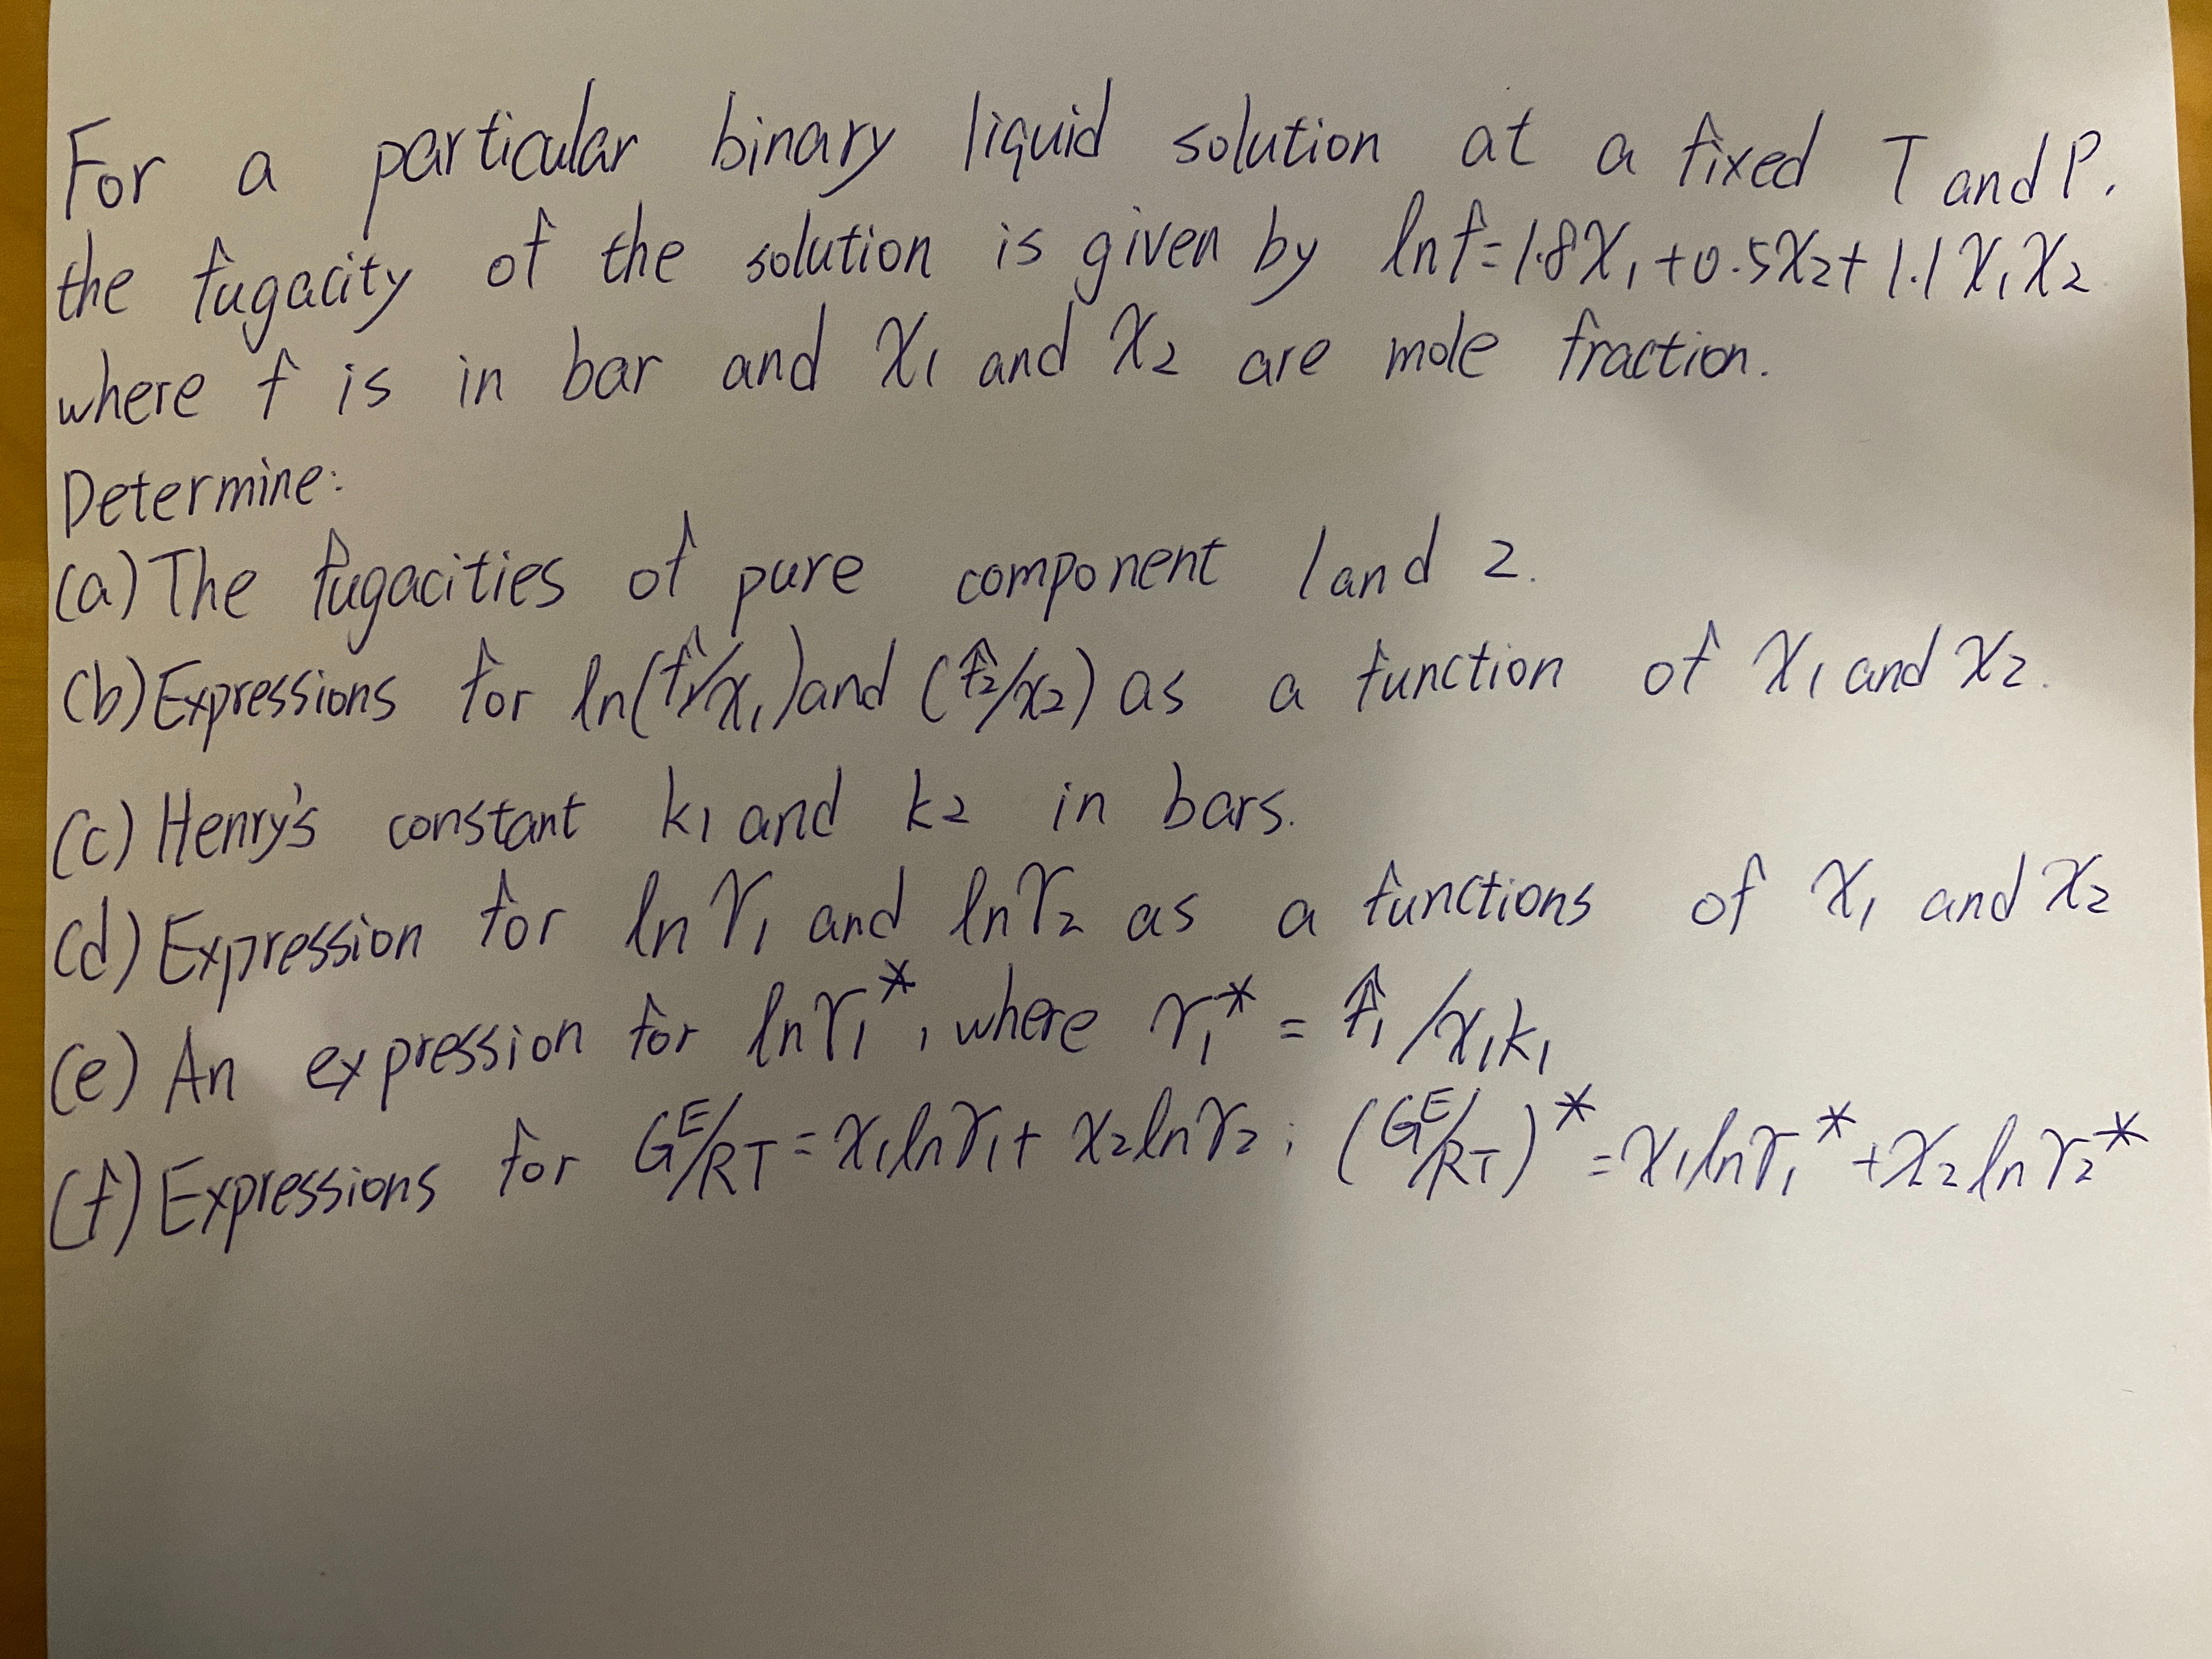 For a particular binary liquid solution at a fixed T and P.
the fugacity of the solution is given by ln f = 1.8X₁ + 0.5X₂ + 1.1 X₁X₂
where f is in bar and X₁ and X₂ are mole fraction.
Determine:
(a) The fugacities of pure component 1 and 2.
(b) Expressions for ln(f̂₁/x₁) and (f̂₂/x₂) as a function of X₁ and X₂.
(c) Henry's constant k₁ and k₂ in bars.
(d) Expression for ln γ₁ and ln γ₂ as a functions of X₁ and X₂
(e) An expression for ln γ₁*, where γ₁* = f̂₁/x₁k₁
(f) Expressions for Gᴱ/RT = X₁lnγ₁ + X₂lnγ₂; (Gᴱ/RT)* = X₁lnγ₁* + X₂lnγ₂*